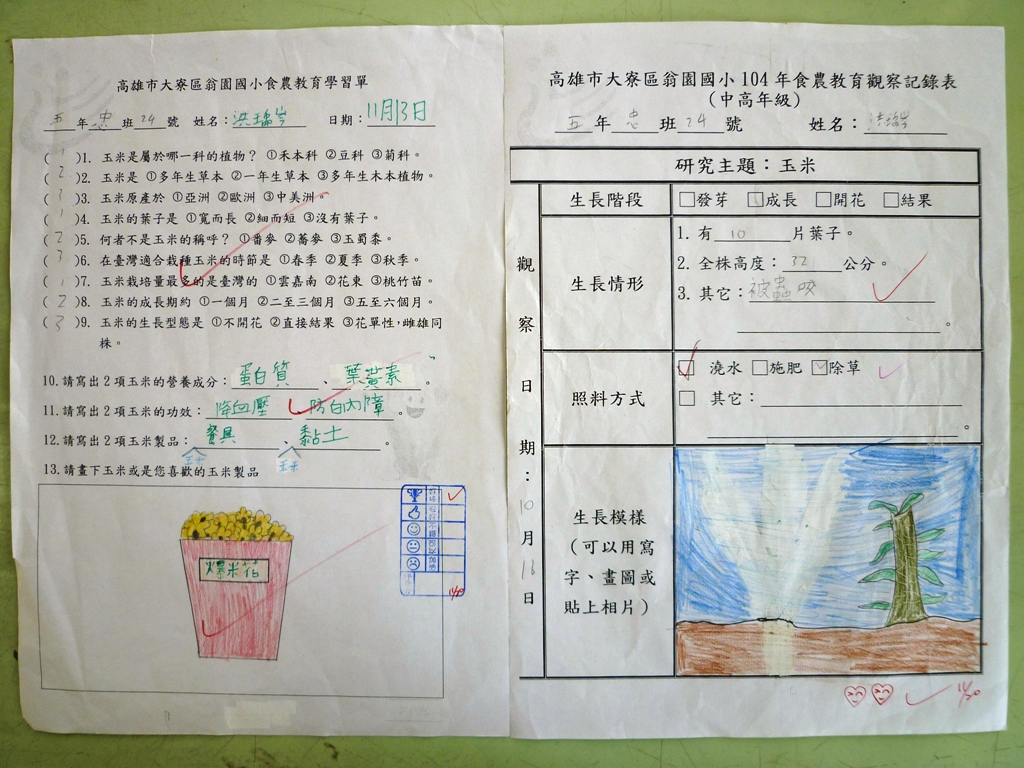 高雄市大寮區翁園國小食農教育學習單
五年忠班24號 姓名：洪瑞岑 日期：11月13日
( 1 )1. 玉米是屬於哪一科的植物？ ①禾本科 ②豆科 ③菊科。
( 2 )2. 玉米是 ①多年生草本 ②一年生草本 ③多年生木本植物。
( 3 )3. 玉米原產於 ①亞洲 ②歐洲 ③中美洲。
( 1 )4. 玉米的葉子是 ①寬而長 ②細而短 ③沒有葉子。
( 2 )5. 何者不是玉米的稱呼？ ①番麥 ②蕎麥 ③玉蜀黍。
( 3 )6. 在臺灣適合栽種玉米的時節是 ①春季 ②夏季 ③秋季。
( 1 )7. 玉米栽培量最多的是臺灣的 ①雲嘉南 ②花東 ③桃竹苗。
( 2 )8. 玉米的成長期約 ①一個月 ②二至三個月 ③五至六個月。
( 3 )9. 玉米的生長型態是 ①不開花 ②直接結果 ③花單性，雌雄同
株。
10.請寫出2項玉米的營養成分：蛋白質、葉黃素。
11.請寫出2項玉米的功效：降血壓、防白內障。
12.請寫出2項玉米製品：餐具、黏土。
玉米 玉米
13.請畫下玉米或是您喜歡的玉米製品
爆米花
11/20
高雄市大寮區翁園國小104年食農教育觀察記錄表
（中高年級）
五年忠班24號 姓名：洪瑞岑
研究主題：玉米
觀察日期：10月16日
生長階段 □發芽 □成長 □開花 □結果
生長情形
1. 有10片葉子。
2. 全株高度：32公分。
3. 其它：被蟲咬
。
照料方式
☑ 澆水 □施肥 ☑除草
□ 其它：
。
生長模樣
（可以用寫
字、畫圖或
貼上相片）
11/20